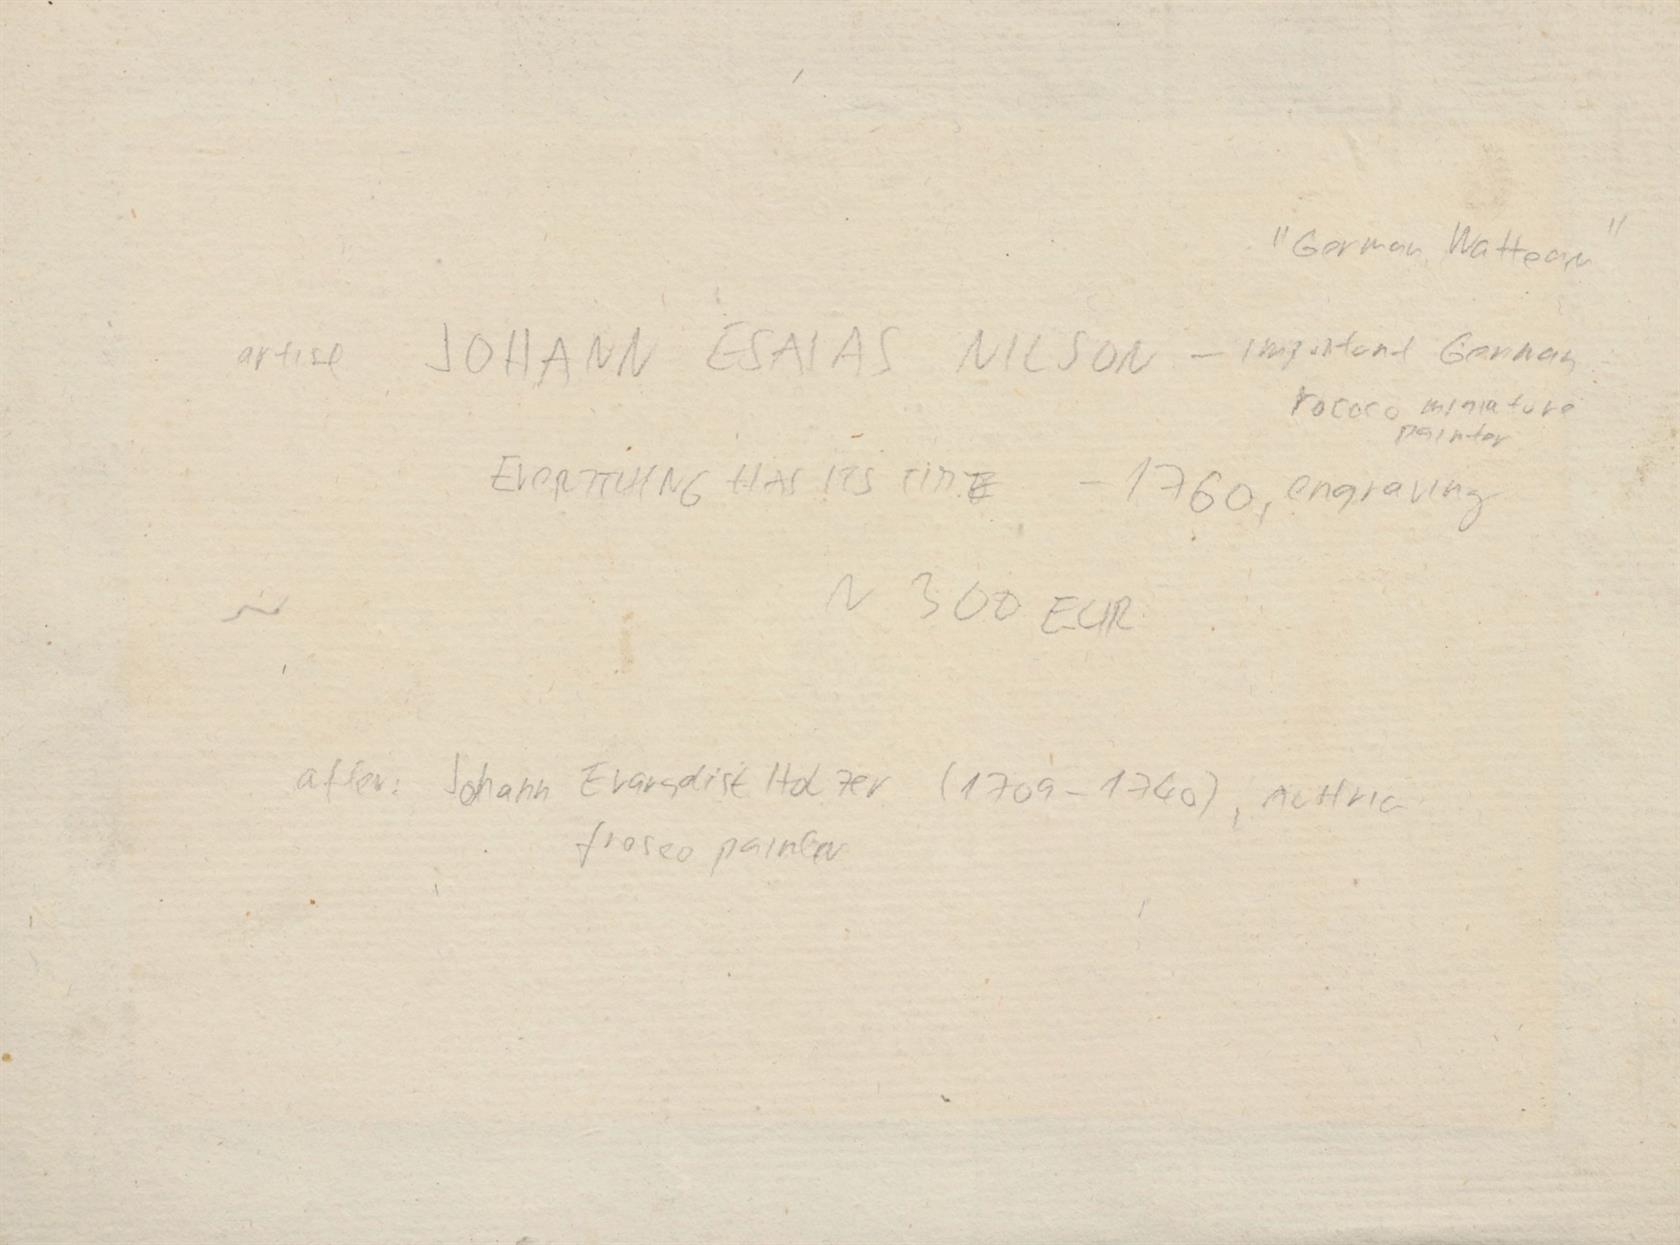 "German Watteau"
artist JOHANN ESAIAS NILSON – important German
rococo miniature
painter
EVERYTHING HAS ITS TIME – 1760, engraving
~ 300 EUR
after: Johann Evangelist Holzer (1709–1740), Austria
fresco painter